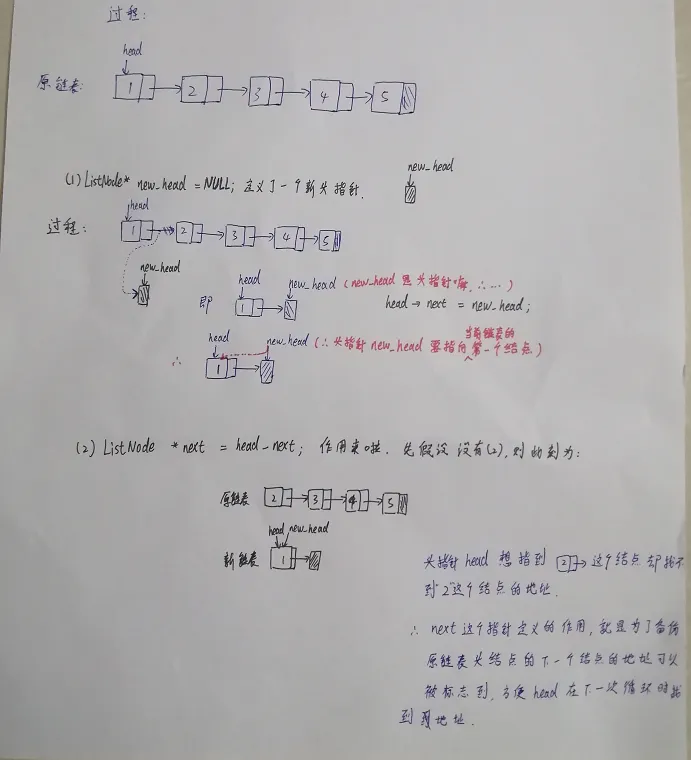 过程:
head
原链表: 1 2 3 4 5
(1) ListNode* new_head = NULL; 定义了一个新头指针.
new_head
head
过程: 1 2 3 4 5
new_head
即 head new_head (new_head 是头指针嘛,∴…)
1
head → next = new_head;
∴ head new_head (∴头指针 new_head 要指向当前链表的第一个结点)
1
(2) ListNode *next = head-next; 作用来啦. 先假设没有(2),则此刻为:
原链表 2 3 4 5
head new_head
新链表 1
头指针 head 想指到 2 → 这个结点却找不
到"2"这个结点的地址.
∴ next 这个指针定义的作用,就是为了备份
原链表头结点的下一个结点的地址可以
被标志到,方便 head 在下一次循环时找
到地址.